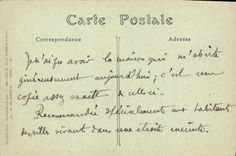 Carte Postale
Correspondance
Adresse
avoir la maison qui m'abrite
généreusement aujourd'hui; c'est une
copie assez exacte de celle-ci.
Recommandée spécialement aux habitants
des villes vivant dans une étroite enceinte.